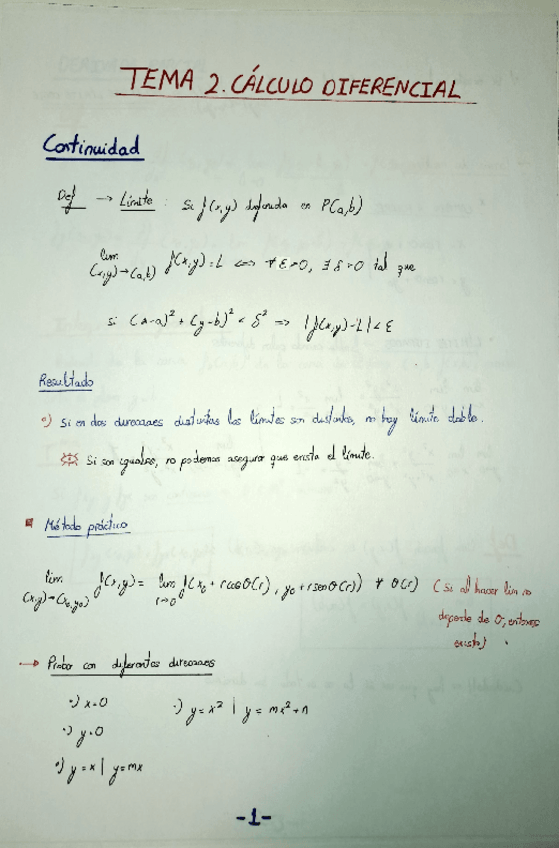 TEMA 2. CÁLCULO DIFERENCIAL
Continuidad
Def → Límite : Si f(x,y) definida en P(a,b)
lim (x,y)→(a,b) f(x,y)=L ⟺ ∀ ε>0, ∃ δ>0 tal que
si (x-a)² + (y-b)² < δ² ⟹ |f(x,y)-L| < ε
Resultado
•) Si en dos direcciones distintas los límites son distintos, no hay límite doble.
Si son iguales, no podemos asegurar que exista el límite.
Método práctico
lim (x,y)→(x₀,y₀) f(x,y) = lim r→0 f(x₀ + r cosθ(r), y₀ + r senθ(r)) ∀ θ(r) (Si al hacer lim no
depende de θ, entonces
existe)
→ Probar con diferentes direcciones
•) x=0 •) y=x² | y=mx²+n
•) y=0
•) y=x | y=mx
-1-